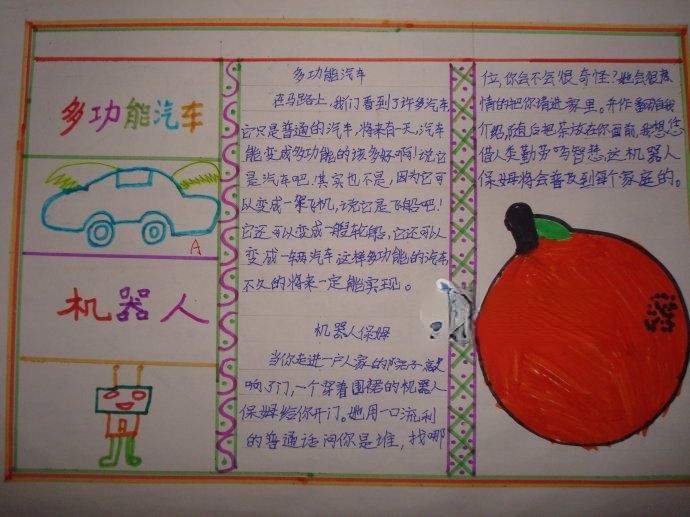 多功能汽车
A
机器人
多功能汽车
在马路上，我们看到了许多汽车，
它只是普通的汽车，将来有一天，汽车
能变成多功能的该多好啊！说它
是汽车吧，其实也不是，因为它可
以变成一架飞机，说它是飞船吧！
它还可以变成一艘轮船，它还可以
变成一辆汽车这样多功能的汽车，
不久的将来一定能实现。
机器人保姆
当你走进一户人家的院子
响了门，一个穿着围裙的机器人
保姆给你开门。她用一口流利
的普通话问你是谁，找哪
位，你会不会很奇怪？她会很热
情的把你请进家里。并作自我
介绍，随后把茶放在你面前，我想您
借人类勤劳与智慧，这机器人
保姆将会普及到每个家庭的。